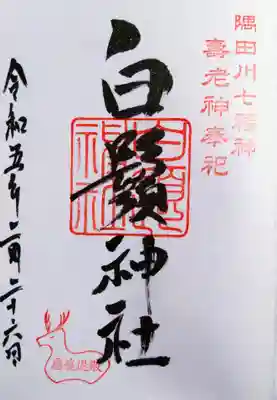 隅田川七福神
壽老神奉祀
白鬚神社
令和五年二月二十六日